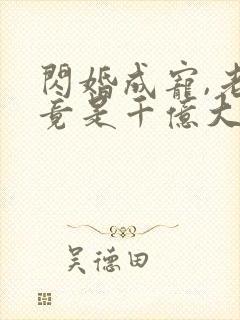 閃婚成寵,老
竟是千億大
吴德田